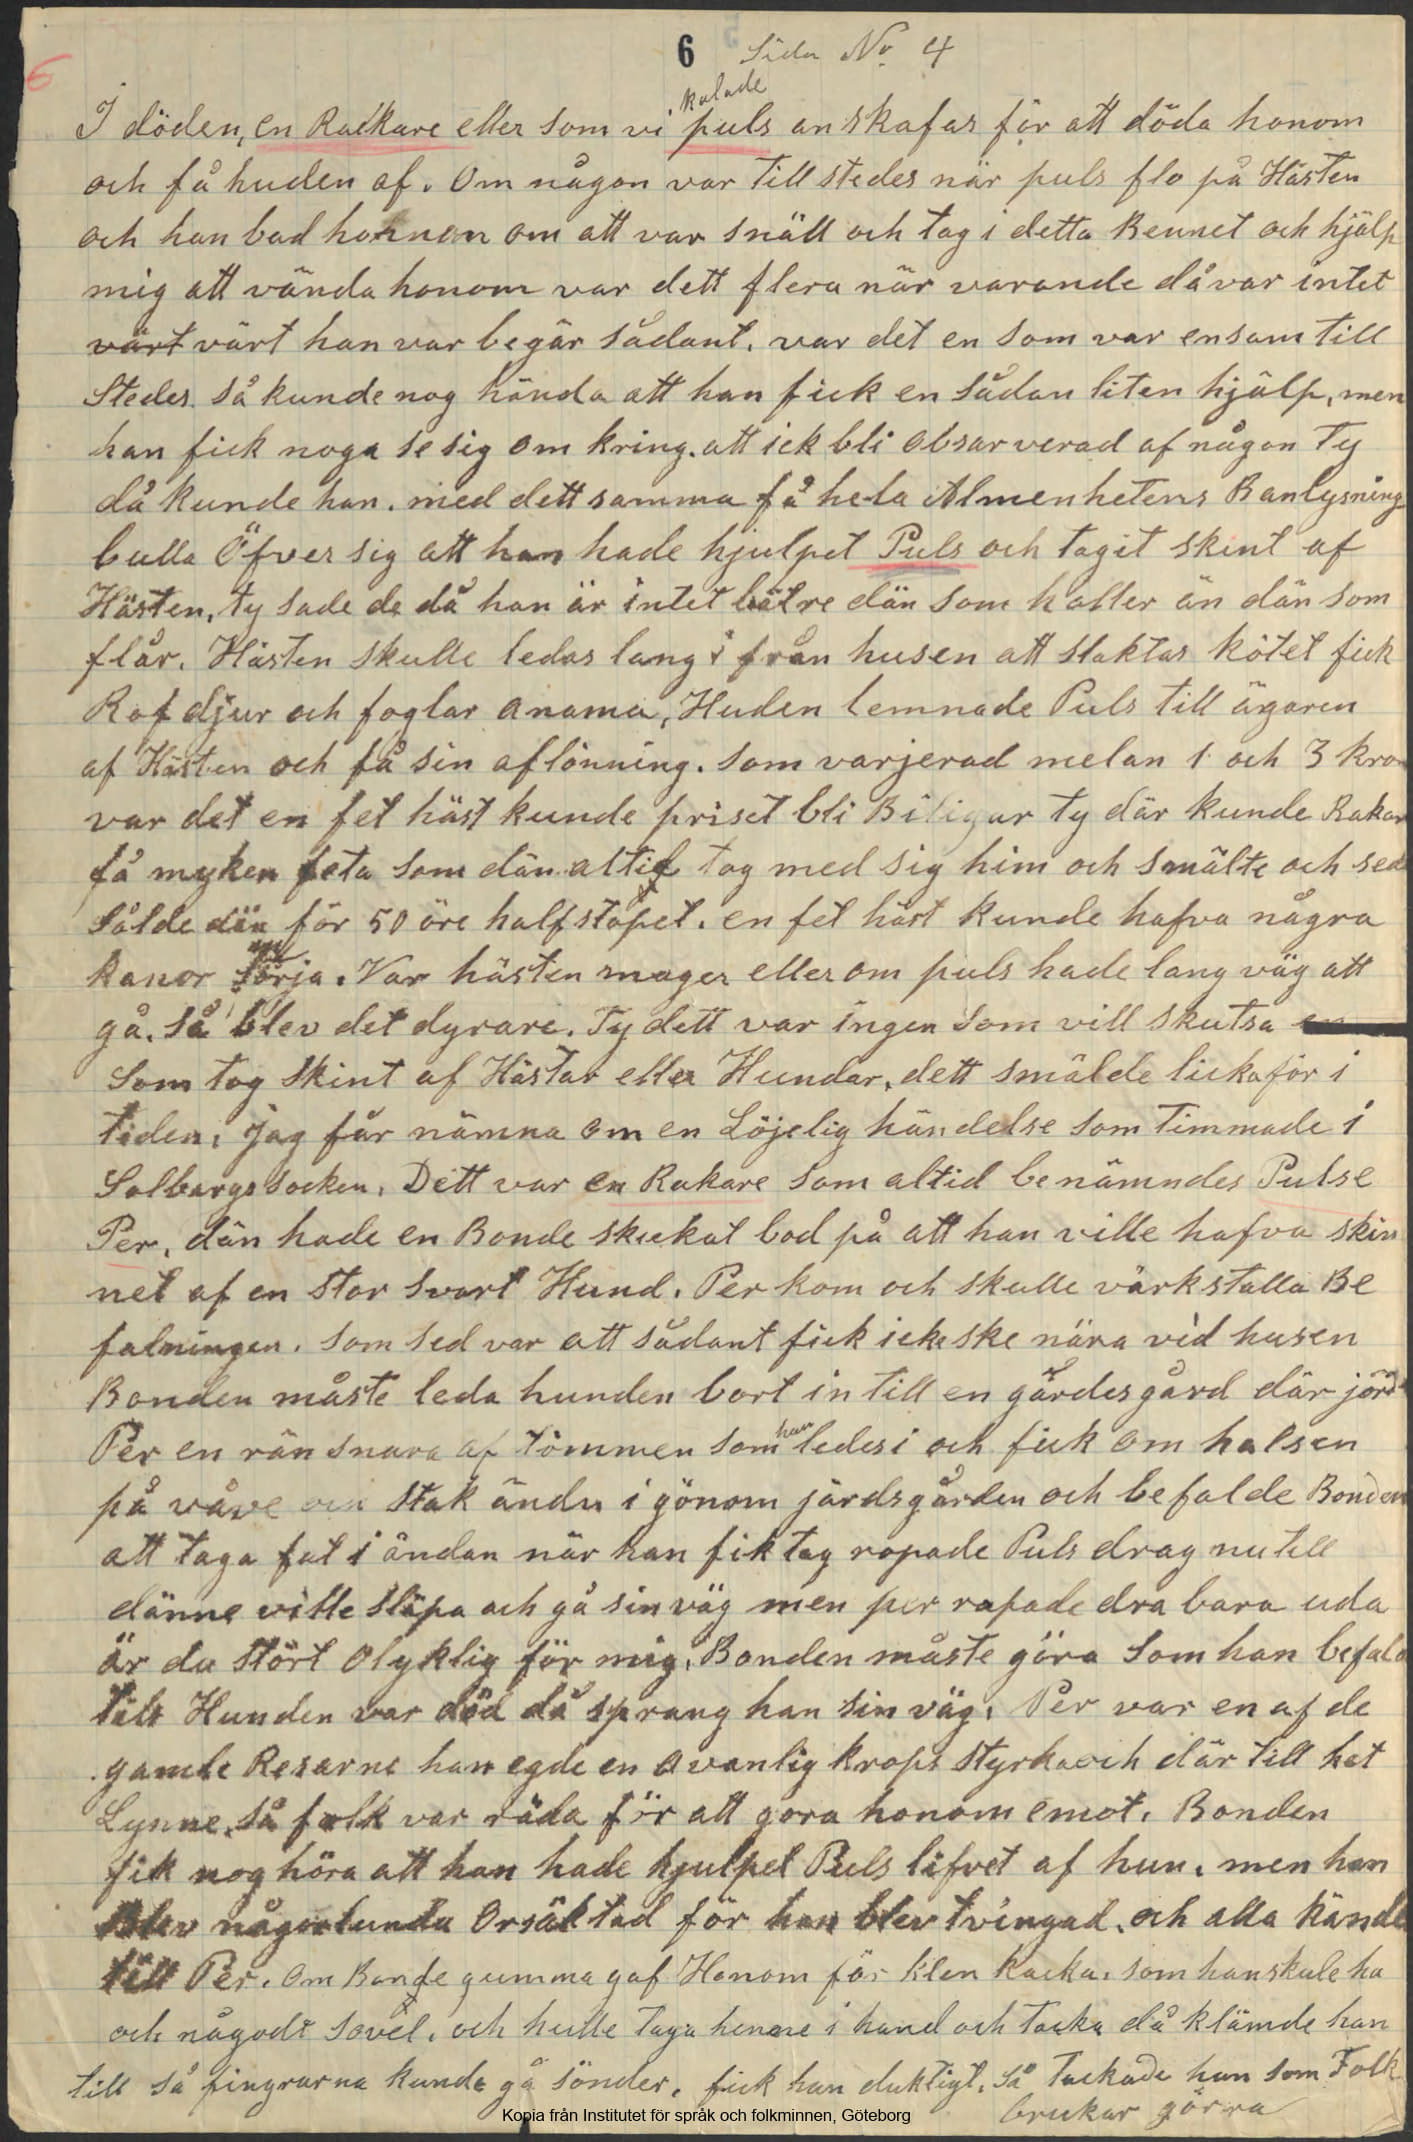 6 Sida No 4
6
kalade
I döden, en Rackare eller som vi puls anskafas för att döda honom
och få huden af. Om någon var till stedes när puls flo på Hästen
och han bad honnom om att var snäll och tag i detta Bennet och hjälp
mig att vända honom var dett flera när varande då var intet
värt värt han var begär sådant. var det en som var ensam till
Stedes så kunde nog hända att han fick en sådan liten hjälp, men
han fick noga se sig om kring. att ick bli obsarverad af någon Ty
då kunde han. med dett samma få hela Almenhetens Banlysning
bulla Öfver sig att han hade hjulpet Puls och tagit skint af
Hästen, ty sade de då han är intet bätre dän som håller än dän som
flår. Hästen skulle ledas lang i från husen att slaktas kötet fick
Rof djur och foglar anama, Huden lemnade Puls till ägaren
af Hästen och få sin aflönning. som varjerad melan 1 och 3 kro
var det en fet häst kunde priset bli Biligar ty där kunde Rakar
få myken feta som dän altid tog med sig him och smälte och sed
sålde dän för 50 öre halfstopet. en fet häst kunde hafva några
kanor Sörja. Var hästen mager eller om puls hade lang väg att
gå. så blev det dyrare. Ty dett var ingen som vill skutsa en
som tog skint af Hästar eller Hundar, dett smälde lickaför i
tiden, jag får nämna om en Löjelig händelse som timmade i
Solbergs socken. Dett var en Rakare som altid benämndes Pulse
Per, dän hade en Bonde skickat bod på att han ville hafva skin
net af en stor svart Hund. Per kom och skulle värkstalla Be
falningen. som sed var att sådant fick icke ske nära vid husen
Bonden måste leda hunden bort in till en gärdesgård där jörd
Per en rän snara af tömmen som han ledes i och fick om halsen
på våve och stak ändn i gönom järdsgården och befalde Bonden
att taga fat i ändan när han fik tag ropade Puls drag nu till
dänne ville släpa och gå sin väg men per rapade dra bara uda
är du stört olyklig för mig, Bonden måste göra som han befald
tils Hunden var död då sprang han sin väg. Per var en af de
gamle Resarne han egde en ovanlig krops styrka och där till het
Lynne. så folk var räda för att göra honom emot. Bonden
fik nog höra att han hade hjulpet Puls lifvet af hun. men han
Blev någorlunda Orsäktad för han blev tvingad. och alla kände
till Per. om Bonde gumma gaf Honom för klen kacka. som han skule ha
och någodt sovel. och hulle taga henne i hand och tacka då klämde han
till så fingrarna kunde gå sönder. fick han duktigt. så tackade han som Folk
brukar görra
Kopia från Institutet för språk och folkminnen, Göteborg